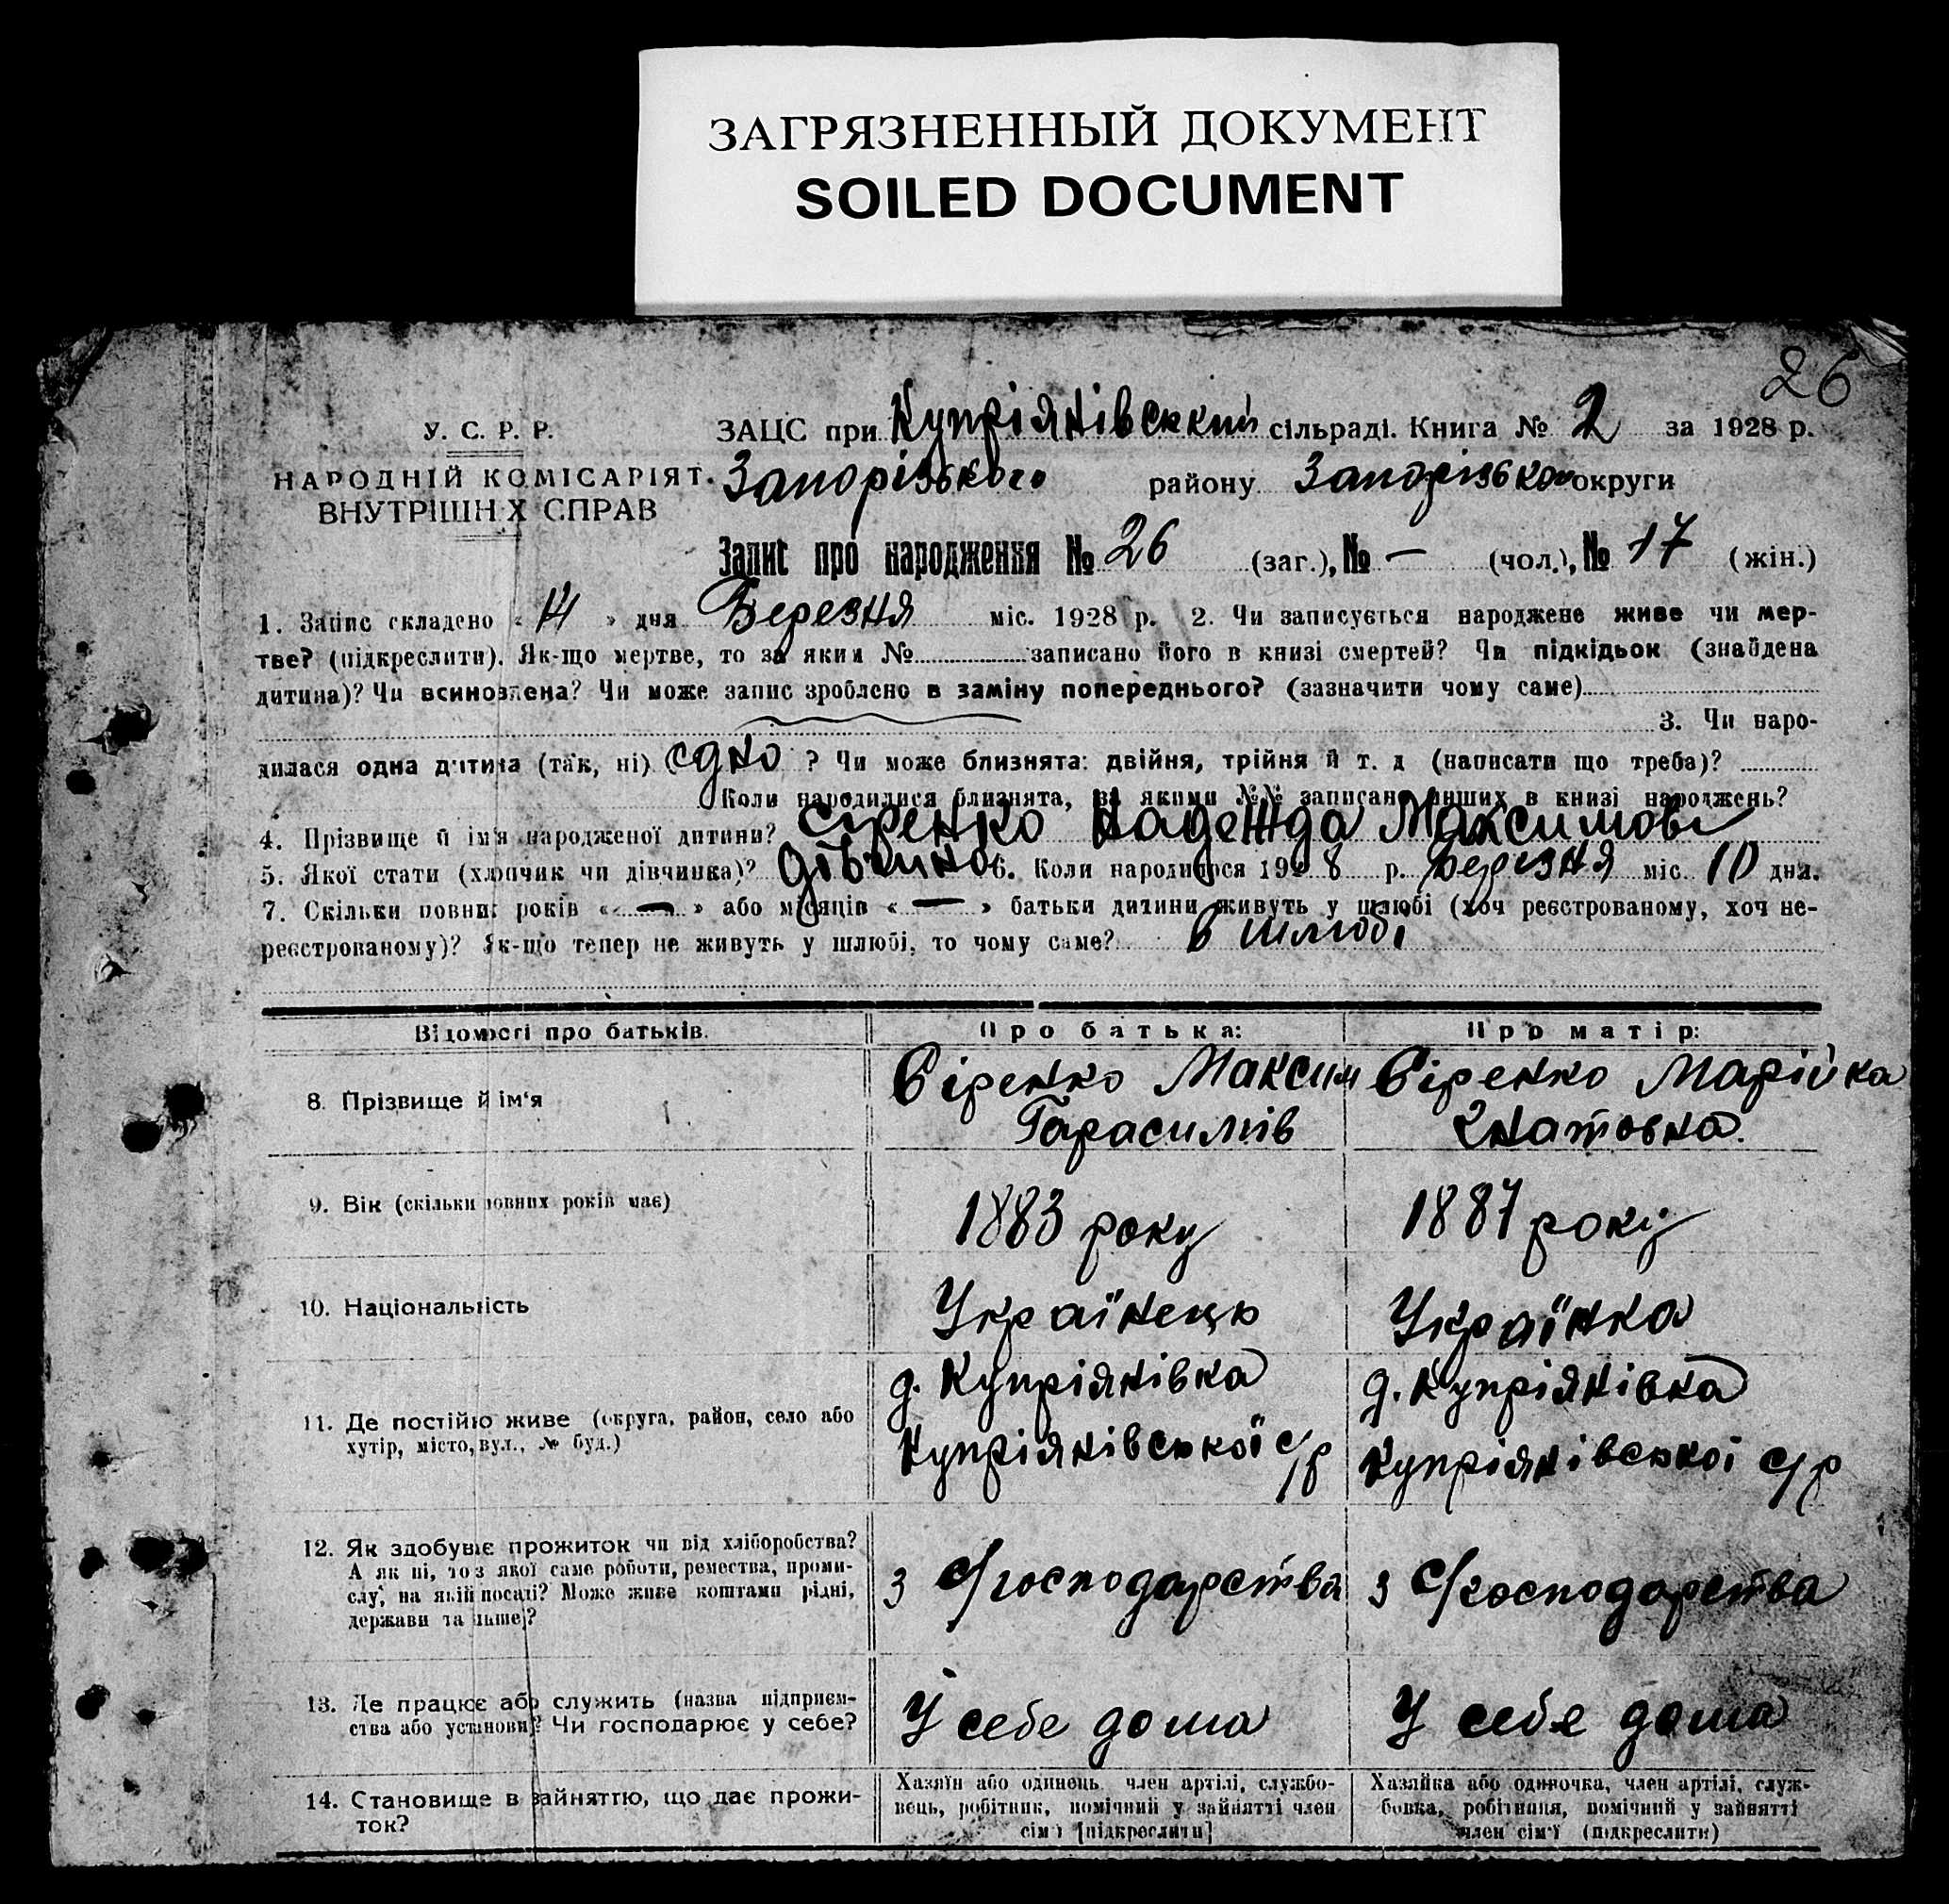 ЗАГРЯЗНЕННЫЙ ДОКУМЕНТ
SOILED DOCUMENT
26
У. С. Р. Р.
НАРОДНІЙ КОМІСАРІЯТ
ВНУТРІШН Х СПРАВ
ЗАЦС при Купріянівський сільраді. Книга № 2 за 1928 р.
Запорізького району Запорізької округи
Запис про народження № 26 (заг.), № — (чол.), № 17 (жін.)
1. Запис складено « 14 » дня Березня міс. 1928 р. 2. Чи записується народжене живе чи мер-
тве? (підкреслити). Як-що мертве, то за яким № записано його в книзі смертей? Чи підкідьок (знайдена
дитина)? Чи всиновлена? Чи може запис зроблено в заміну попереднього? (зазначити чому саме)
3. Чи наро-
дилася одна дитина (так, ні) одно ? Чи може близнята: двійня, трійня й т. д (написати що треба)?
Коли народилися близнята, за якими №№ записано инших в книзі народжень?
4. Прізвище й ім'я народженої дитини? Сіренко Надежда Максимові
5. Якої стати (хлопчик чи дівчинка)? дівчино 6. Коли народилося 1928 р. Березня міс. 10 дня.
7. Скільки повних років « — » або місяців « — » батьки дитини живуть у шлюбі (хоч реєстрованому, хоч не-
реєстрованому)? Як-що тепер не живуть у шлюбі, то чому саме? в шлюбі
Відомості про батьків. Про батька: Про матір:
8. Прізвище й ім'я Сіренко Максим Сіренко Марійка
Гарасимів Гнатовна.
9. Вік (скільки повних років має) 1883 року 1887 року
10. Національність Українець Українка
д. Купріянівка д. Купріянівка
11. Де постійно живе (округа, район, село або
хутір, місто, вул., № буд.) Купріянівської с/р Купріянівської с/р
12. Як здобуває прожиток чи від хліборобства?
А як ні, то з якої саме роботи, ремества, проми-
слу, на якій посаді? Може живе коштами рідні,
держави та інше? з с/господарства з с/господарства
13. Де працює або служить (назва підприєм-
ства або установи)? Чи господарює у себе? У себе дома У себе дома
14. Становище в зайняттю, що дає прожи-
ток?
Хазяїн або одинець, член артілі, службо-
вець, робітник, помічний у зайнятті член
сім'ї [підкреслити]
Хазяйка або одиночка, член артілі, служ-
бовка, робітниця, помічний у зайнятті
член сім'ї (підкреслити)